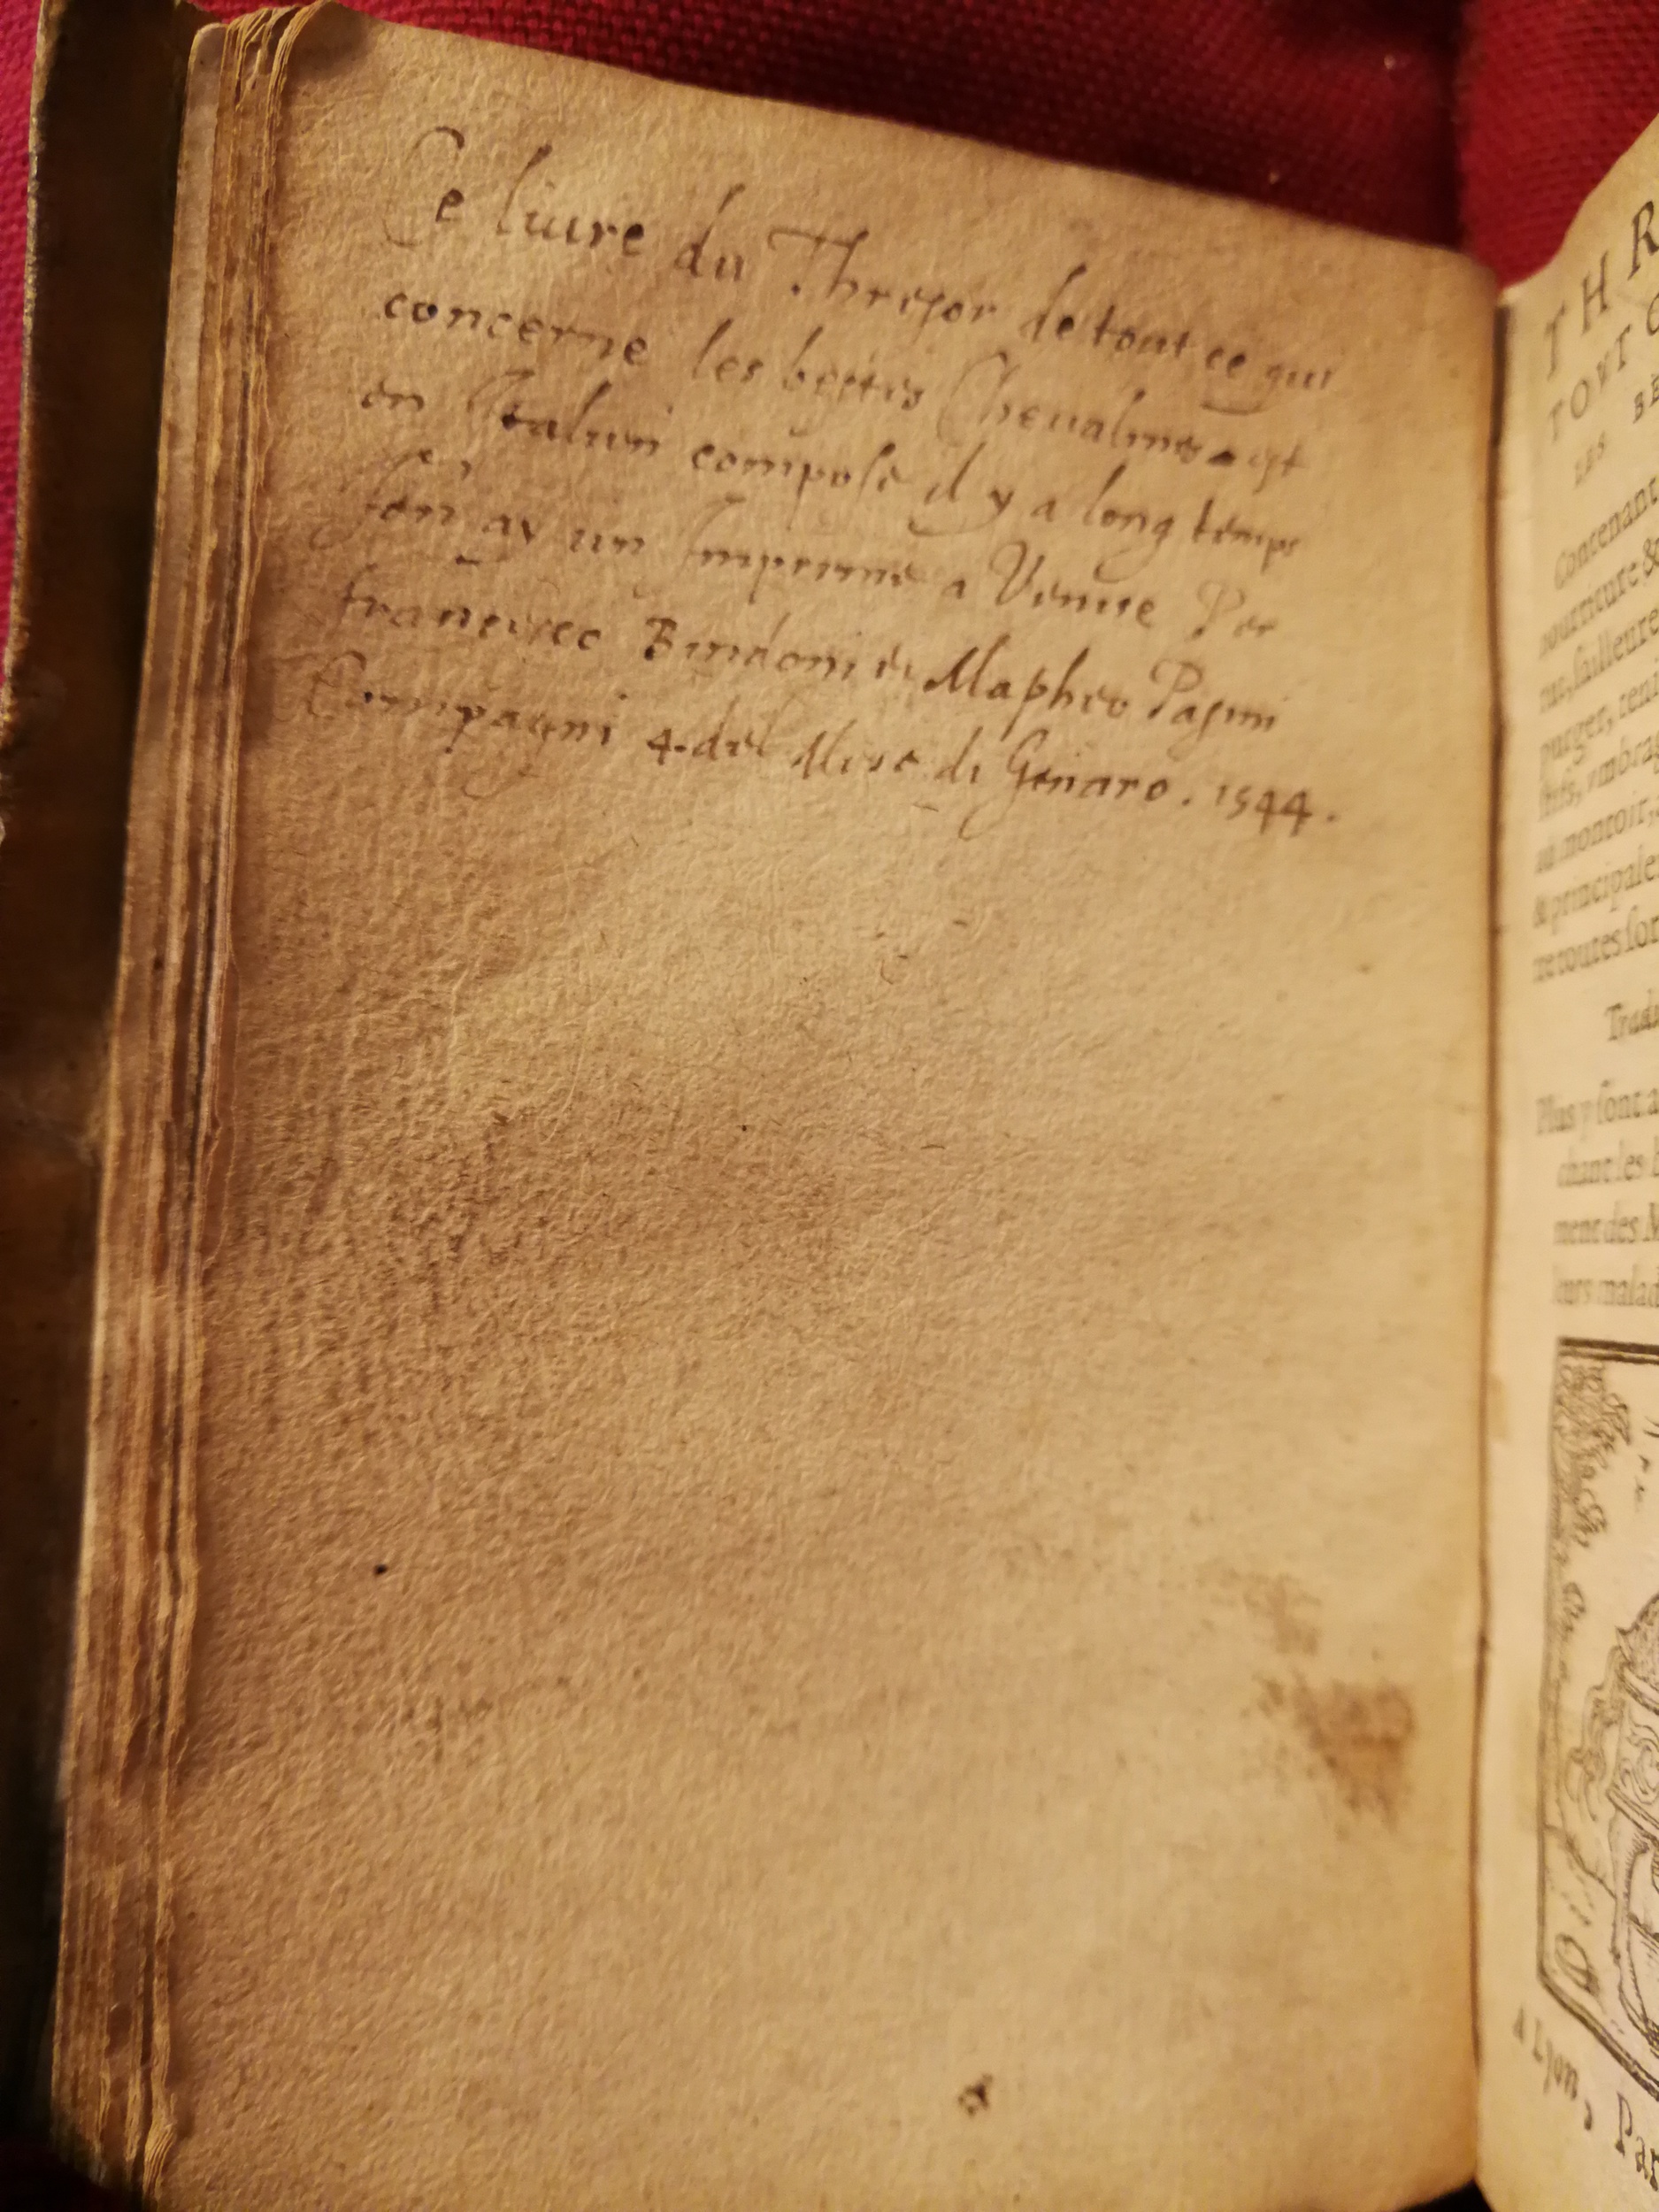 Ce liure du Thresor de tout ce qui
concerne les bestes Cheualines est
en Italien compose il y a long temps
J'en ay un Imprime a Venise Per
francesco Bindoni et Mapheo Pasini
Compagni 4. del Mese di Genaro. 1544.
THR
TOVT C
LES BE
Contenant
nourriture &
ner,
purger,
ombrag
au montoir,
& principale
toutes sor
Tradu
Plus y sont a
chant les
ment des M
leurs malad
A Lyon, Par